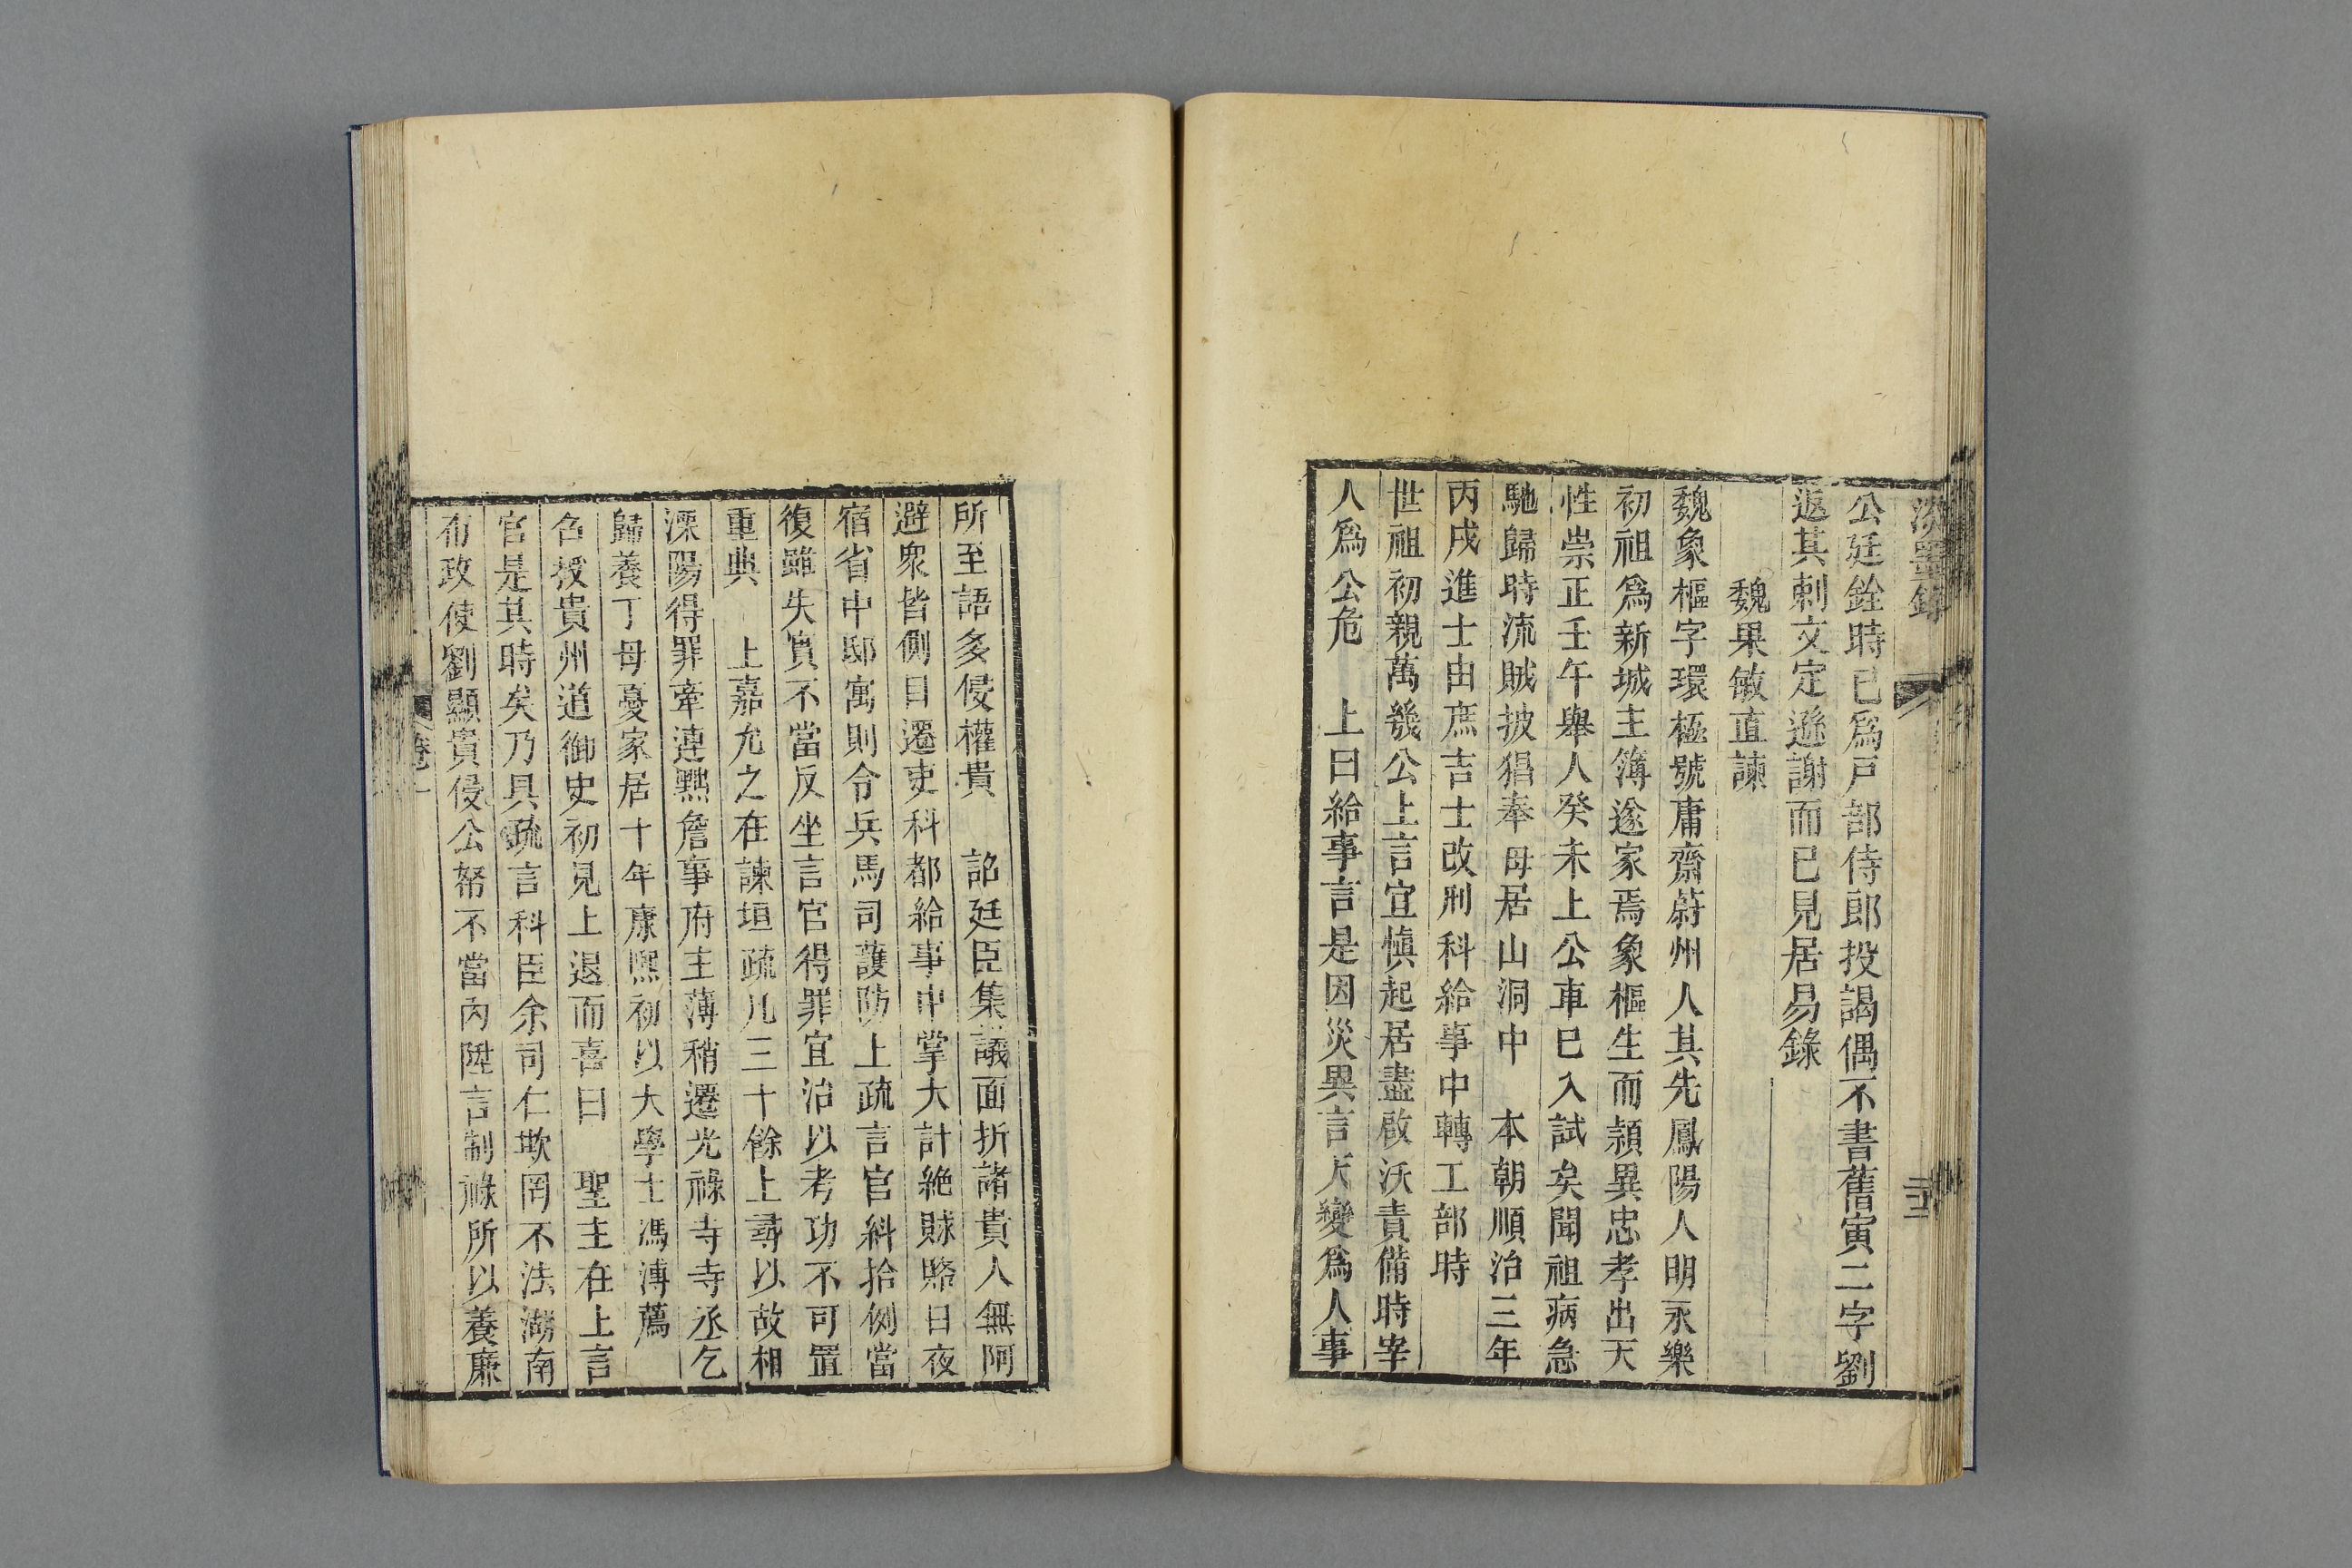 淡墨錄
公廷銓時已爲戸部侍郎投謁偶不書舊寅二字劉
返其刺文定遜謝而已見居易錄
魏果敏直諫
魏象樞字環極號庸齋蔚州人其先鳳陽人明永樂
初祖爲新城主簿遂家焉象樞生而頴異忠孝出天
性崇正壬午舉人癸未上公車巳入試矣聞祖病急
馳歸時流賊披猖奉母居山洞中　本朝順治三年
丙戌進士由庶吉士改刑科給事中轉工部時
世祖初親萬幾公上言宜愼起居盡啟沃責備時宰
人爲公危　上曰給事言是因災異言天變爲人事
所至語多侵權貴　詔廷臣集議面折諸貴人無阿
避衆皆側目遷吏科都給事中掌大計絶賕賂日夜
宿省中邸寓則令兵馬司護防上疏言官糾拾例當
復雖失實不當反坐言官得罪宜治以考功不可置
重典　上嘉允之在諫垣疏凡三十餘上尋以故相
溧陽得罪牽連黜詹事府主薄稍遷光祿寺寺丞乞
歸養丁母憂家居十年康熙初以大學士馮溥薦
召授貴州道御史初見上退而喜曰　聖主在上言
官是其時矣乃具疏言科臣余司仁欺罔不法湖南
布政使劉顯貴侵公帑不當內陞言制祿所以養廉
卷一